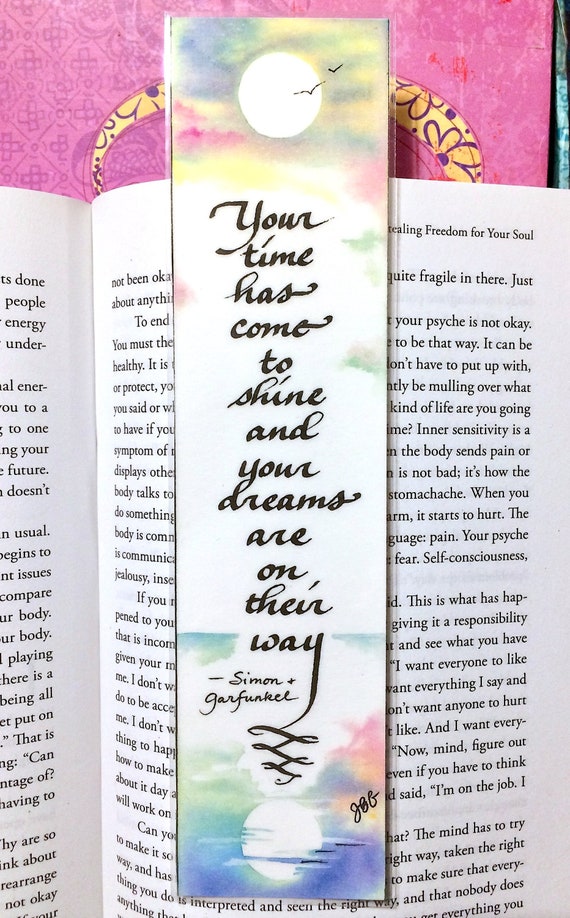 Your
time
has
come
to
shine
and
your
dreams
are
on
their
way
— Simon +
Garfunkel
JBB
ts done
people
r energy
under-
nal ener-
you to a
g to one
owing your
e future.
n doesn't
in usual.
begins to
nt issues
compare
ur body.
our body.
d playing
there is a
being all
et put on
." That is
ng: "Can
ntage of?
having to
Why are so
nk about
rearrange
not okay
ealing Freedom for Your Soul
not been okay quite fragile in there. Just
about anything
To end your psyche is not okay.
You must the to be that way. It can be
healthy. It is don't have to put up with,
or protect, you ntly be mulling over what
you said or wh kind of life are you going
to have if you time? Inner sensitivity is a
symptom of n the body sends pain or
displays other is not bad; it's how the
body talks to stomachache. When you
do something arm, it starts to hurt. The
body is comm guage: pain. Your psyche
is communica fear. Self-consciousness,
jealousy, inse
If you d. This is what has hap-
pened to your giving it a responsibility
that is incom t and see what you have
given your m "I want everyone to like
me. I don't w want everything I say and
do to be acce don't want anyone to hurt
me. I don't w t like. And I want every-
thing to happ "Now, mind, figure out
how to make even if you have to think
about it day a d said, "I'm on the job. I
will work on
Can you at? The mind has to try
to make it so right way, taken the right
way, and has to make sure that every-
thing you do is interpreted and seen the right way, and that nobody does
everything you